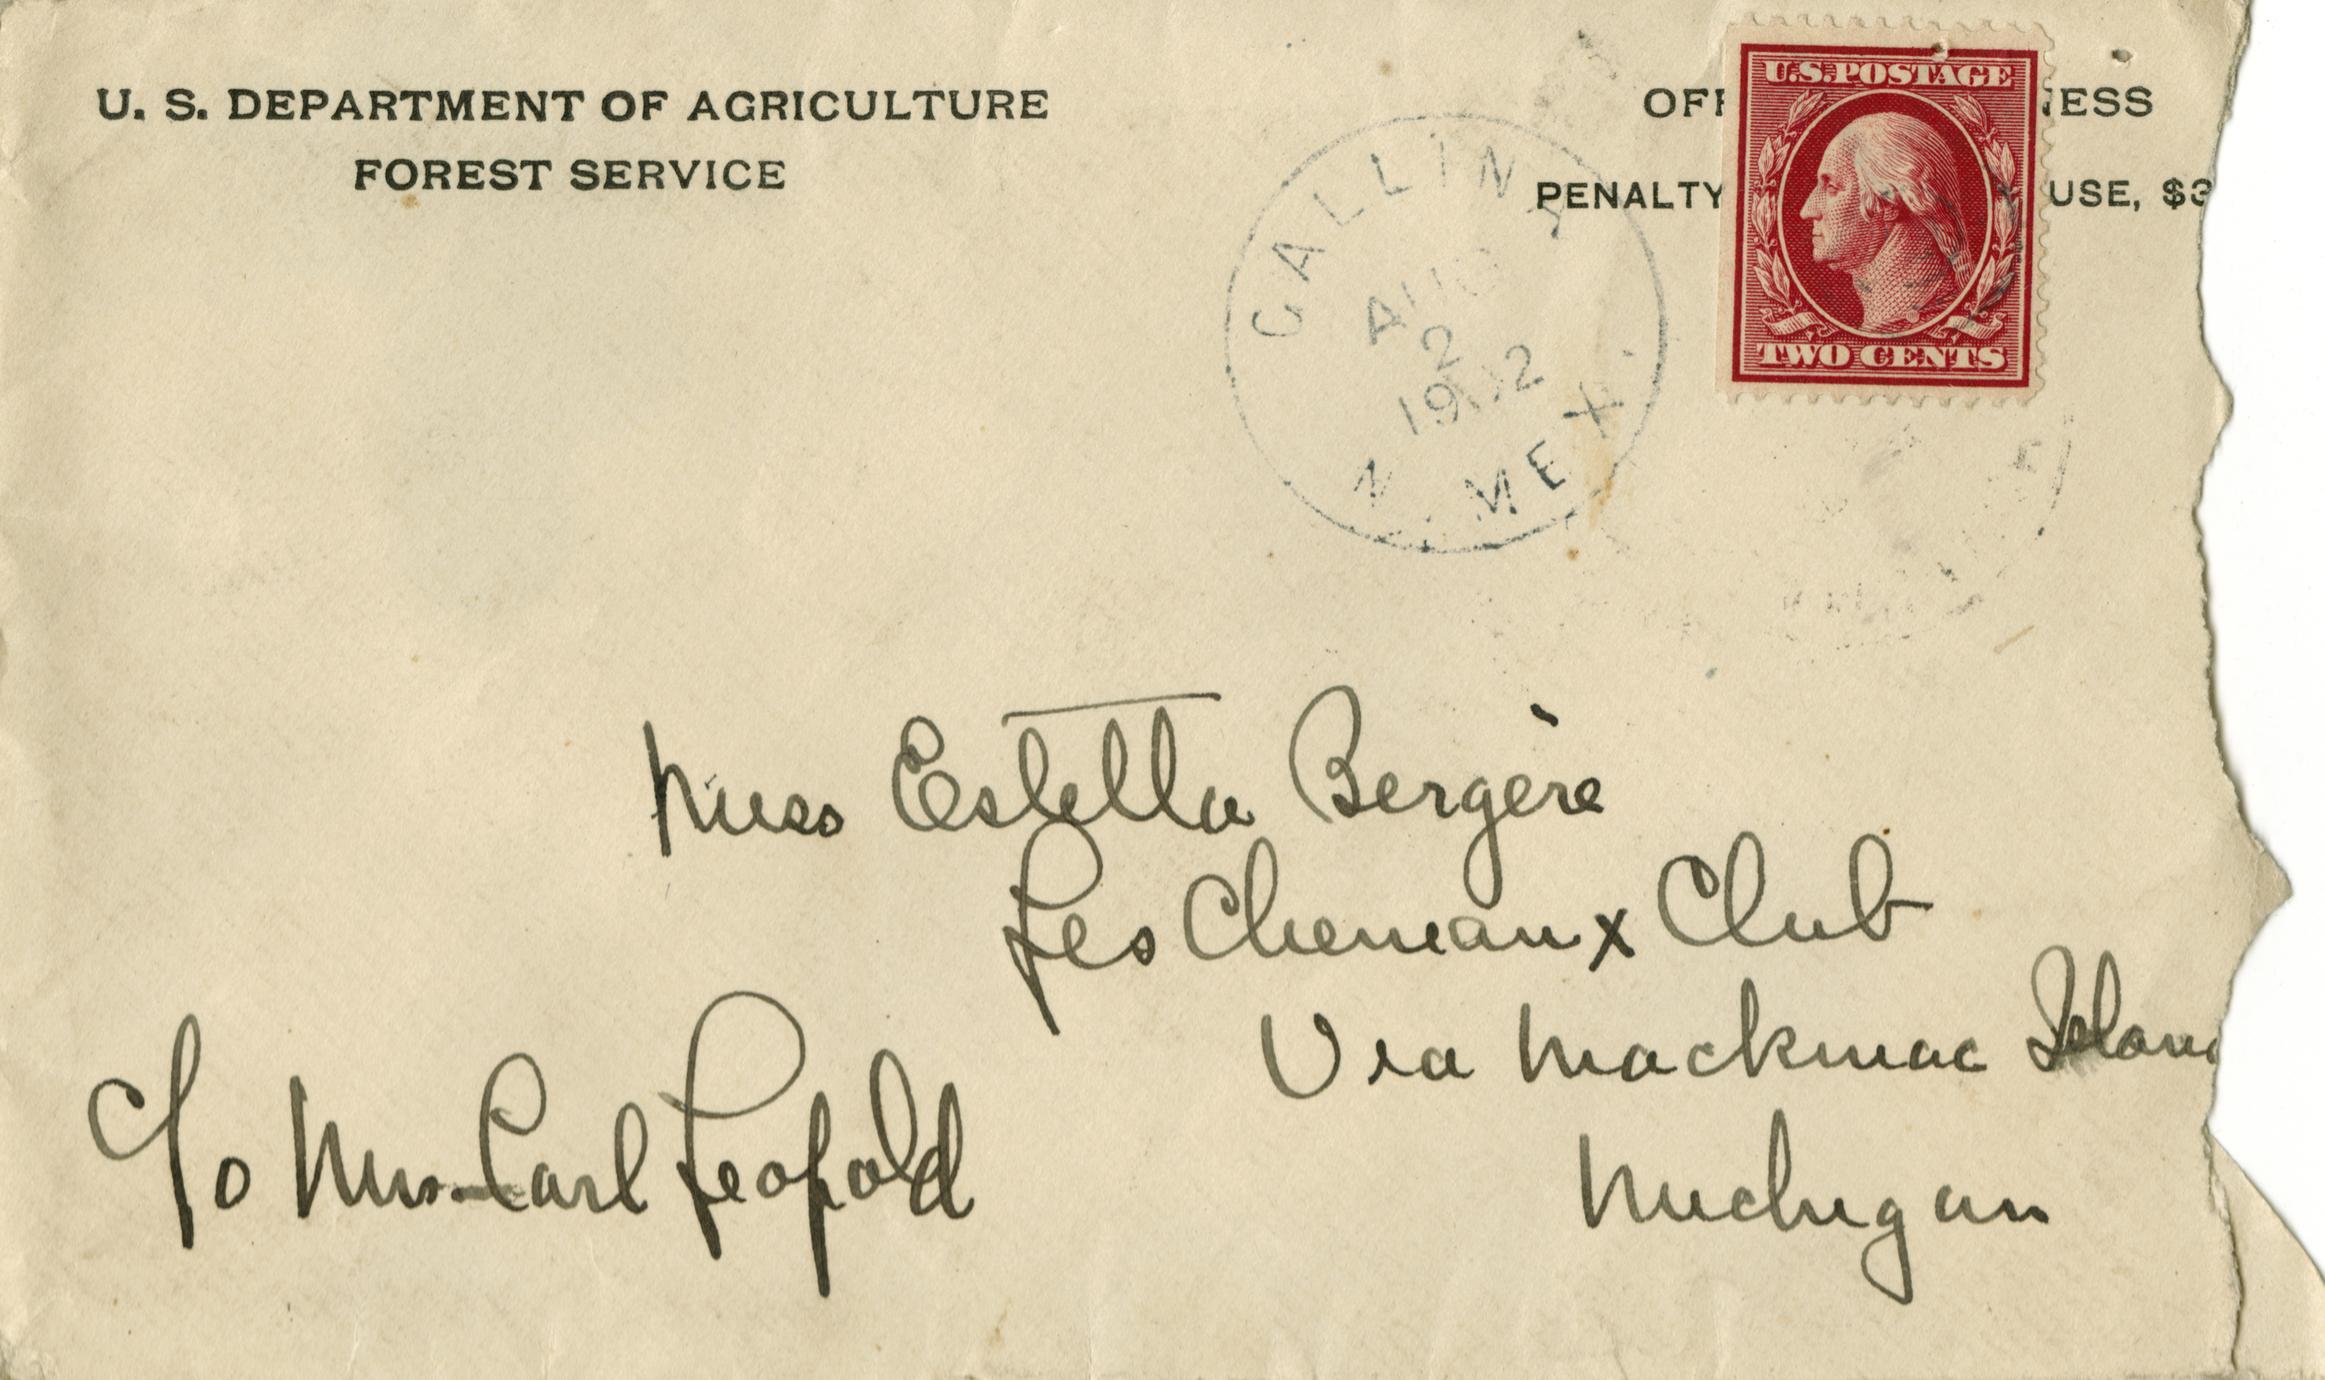 U. S. DEPARTMENT OF AGRICULTURE
FOREST SERVICE
OFF
NESS
PENALTY
USE, $3
U.S.POSTAGE
TWO CENTS
GALLINA
AUG
2
1912
N. MEX.
Miss Estella Bergère
Les Cheneaux Club
Via Mackinac Island
Michigan
C/o Mrs. Carl Leopold